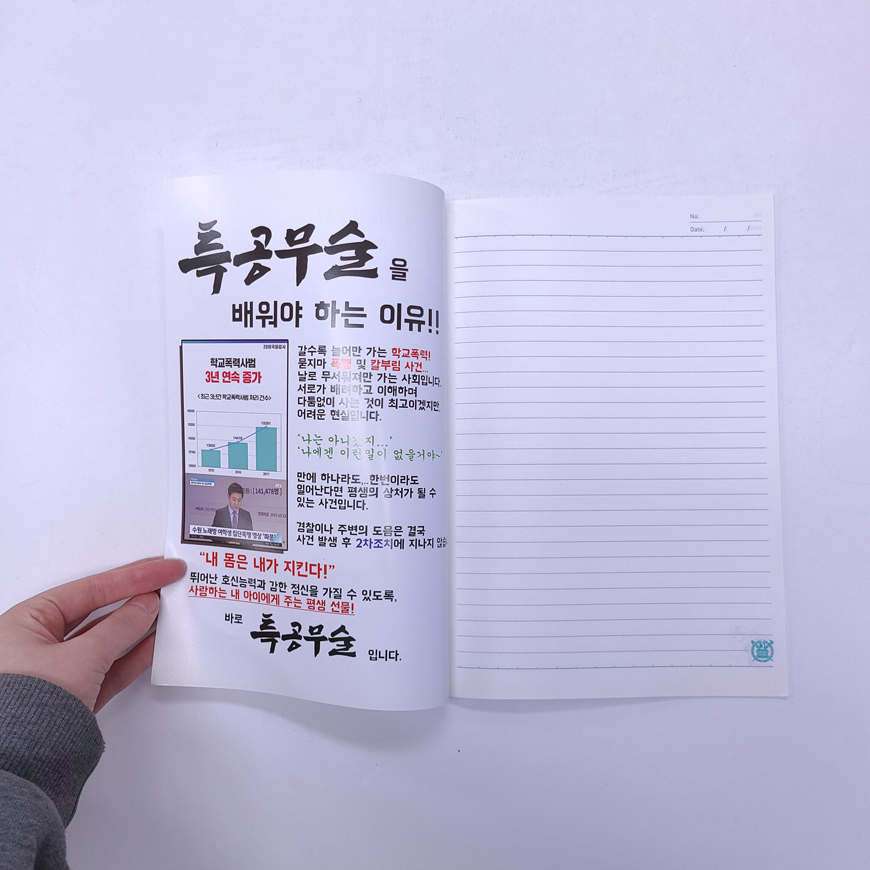 특공무술을
배워야 하는 이유!!
학교폭력사범
3년 연속 증가
<최근 3년간 학교폭력사범 처리 건수>
[141,478명]
수원 노래방 여학생 집단폭행 영상 '파문'
갈수록 늘어만 가는 학교폭력!
묻지마 폭행 및 칼부림 사건...
날로 무서워져만 가는 사회입니다.
서로가 배려하고 이해하며
다툼없이 사는 것이 최고이겠지만,
어려운 현실입니다.
'나는 아니겠지...'
'나에겐 이런일이 없을거야~'
만에 하나라도,..한번이라도
일어난다면 평생의 상처가 될 수
있는 사건입니다.
경찰이나 주변의 도움은 결국
사건 발생 후 2차조치에 지나지 않습
"내 몸은 내가 지킨다!"
뛰어난 호신능력과 강한 정신을 가질 수 있도록,
사랑하는 내 아이에게 주는 평생 선물!
바로 특공무술 입니다.
No.
Date. / /